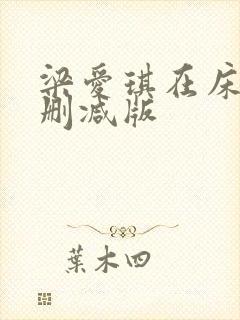 梁爱琪在床
删减版
葉木四